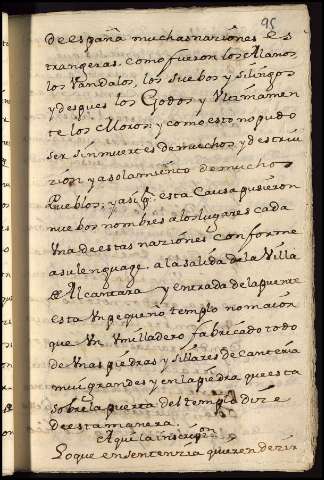 95
de españa muchas nariónes es
trangeras, como fueron los Alanos
los Vandalos, los suebos y silingos
y despues los Godos y Ultimamen
te los Moros: y como esto no pudo
ser sin muertes de muchos, y destrui
rión y asolamiento de muchos
Pueblos; y asi q. esta causa pusieron
nuebos nombres a los lugares cada
Una de estas nariónes conforme
a su lenguage. a la salida de la Villa
de Alcantara y entrada de la puente
esta Un pequeno templo no maior
que Un Umilladero fabricado todo
de Unas piedras y sillares de canteria
mui grandes y en la piedra que esta
sobre la puerta del templo dize
de esta manera.
Aqui la inscripon
Lo que en sentenzia quieren dezir